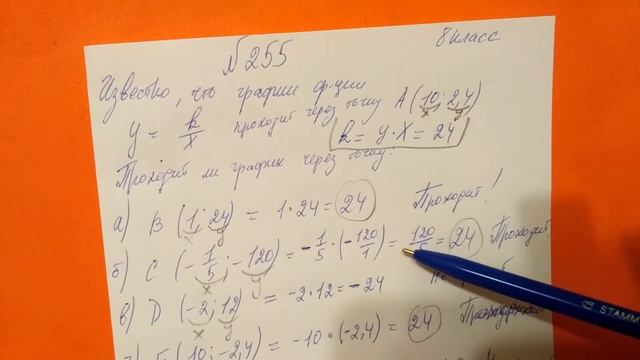 №255
8 класс
Известно, что график ф-ции
y = k/x проходит через точку A (10; 2,4)
x y
k = y·x = 24
Проходит ли график через точку:
а) B (1; 24) = 1·24 = 24 Проходит!
x y
б) C (-1/5; -120) = -1/5·(-120/1) = 120/5 = 24 Проходит.
x y
в) D (-2; 12) = -2·12 = -24
x y
(-10; -2,4) = -10·(-2,4) = 24
STAMM